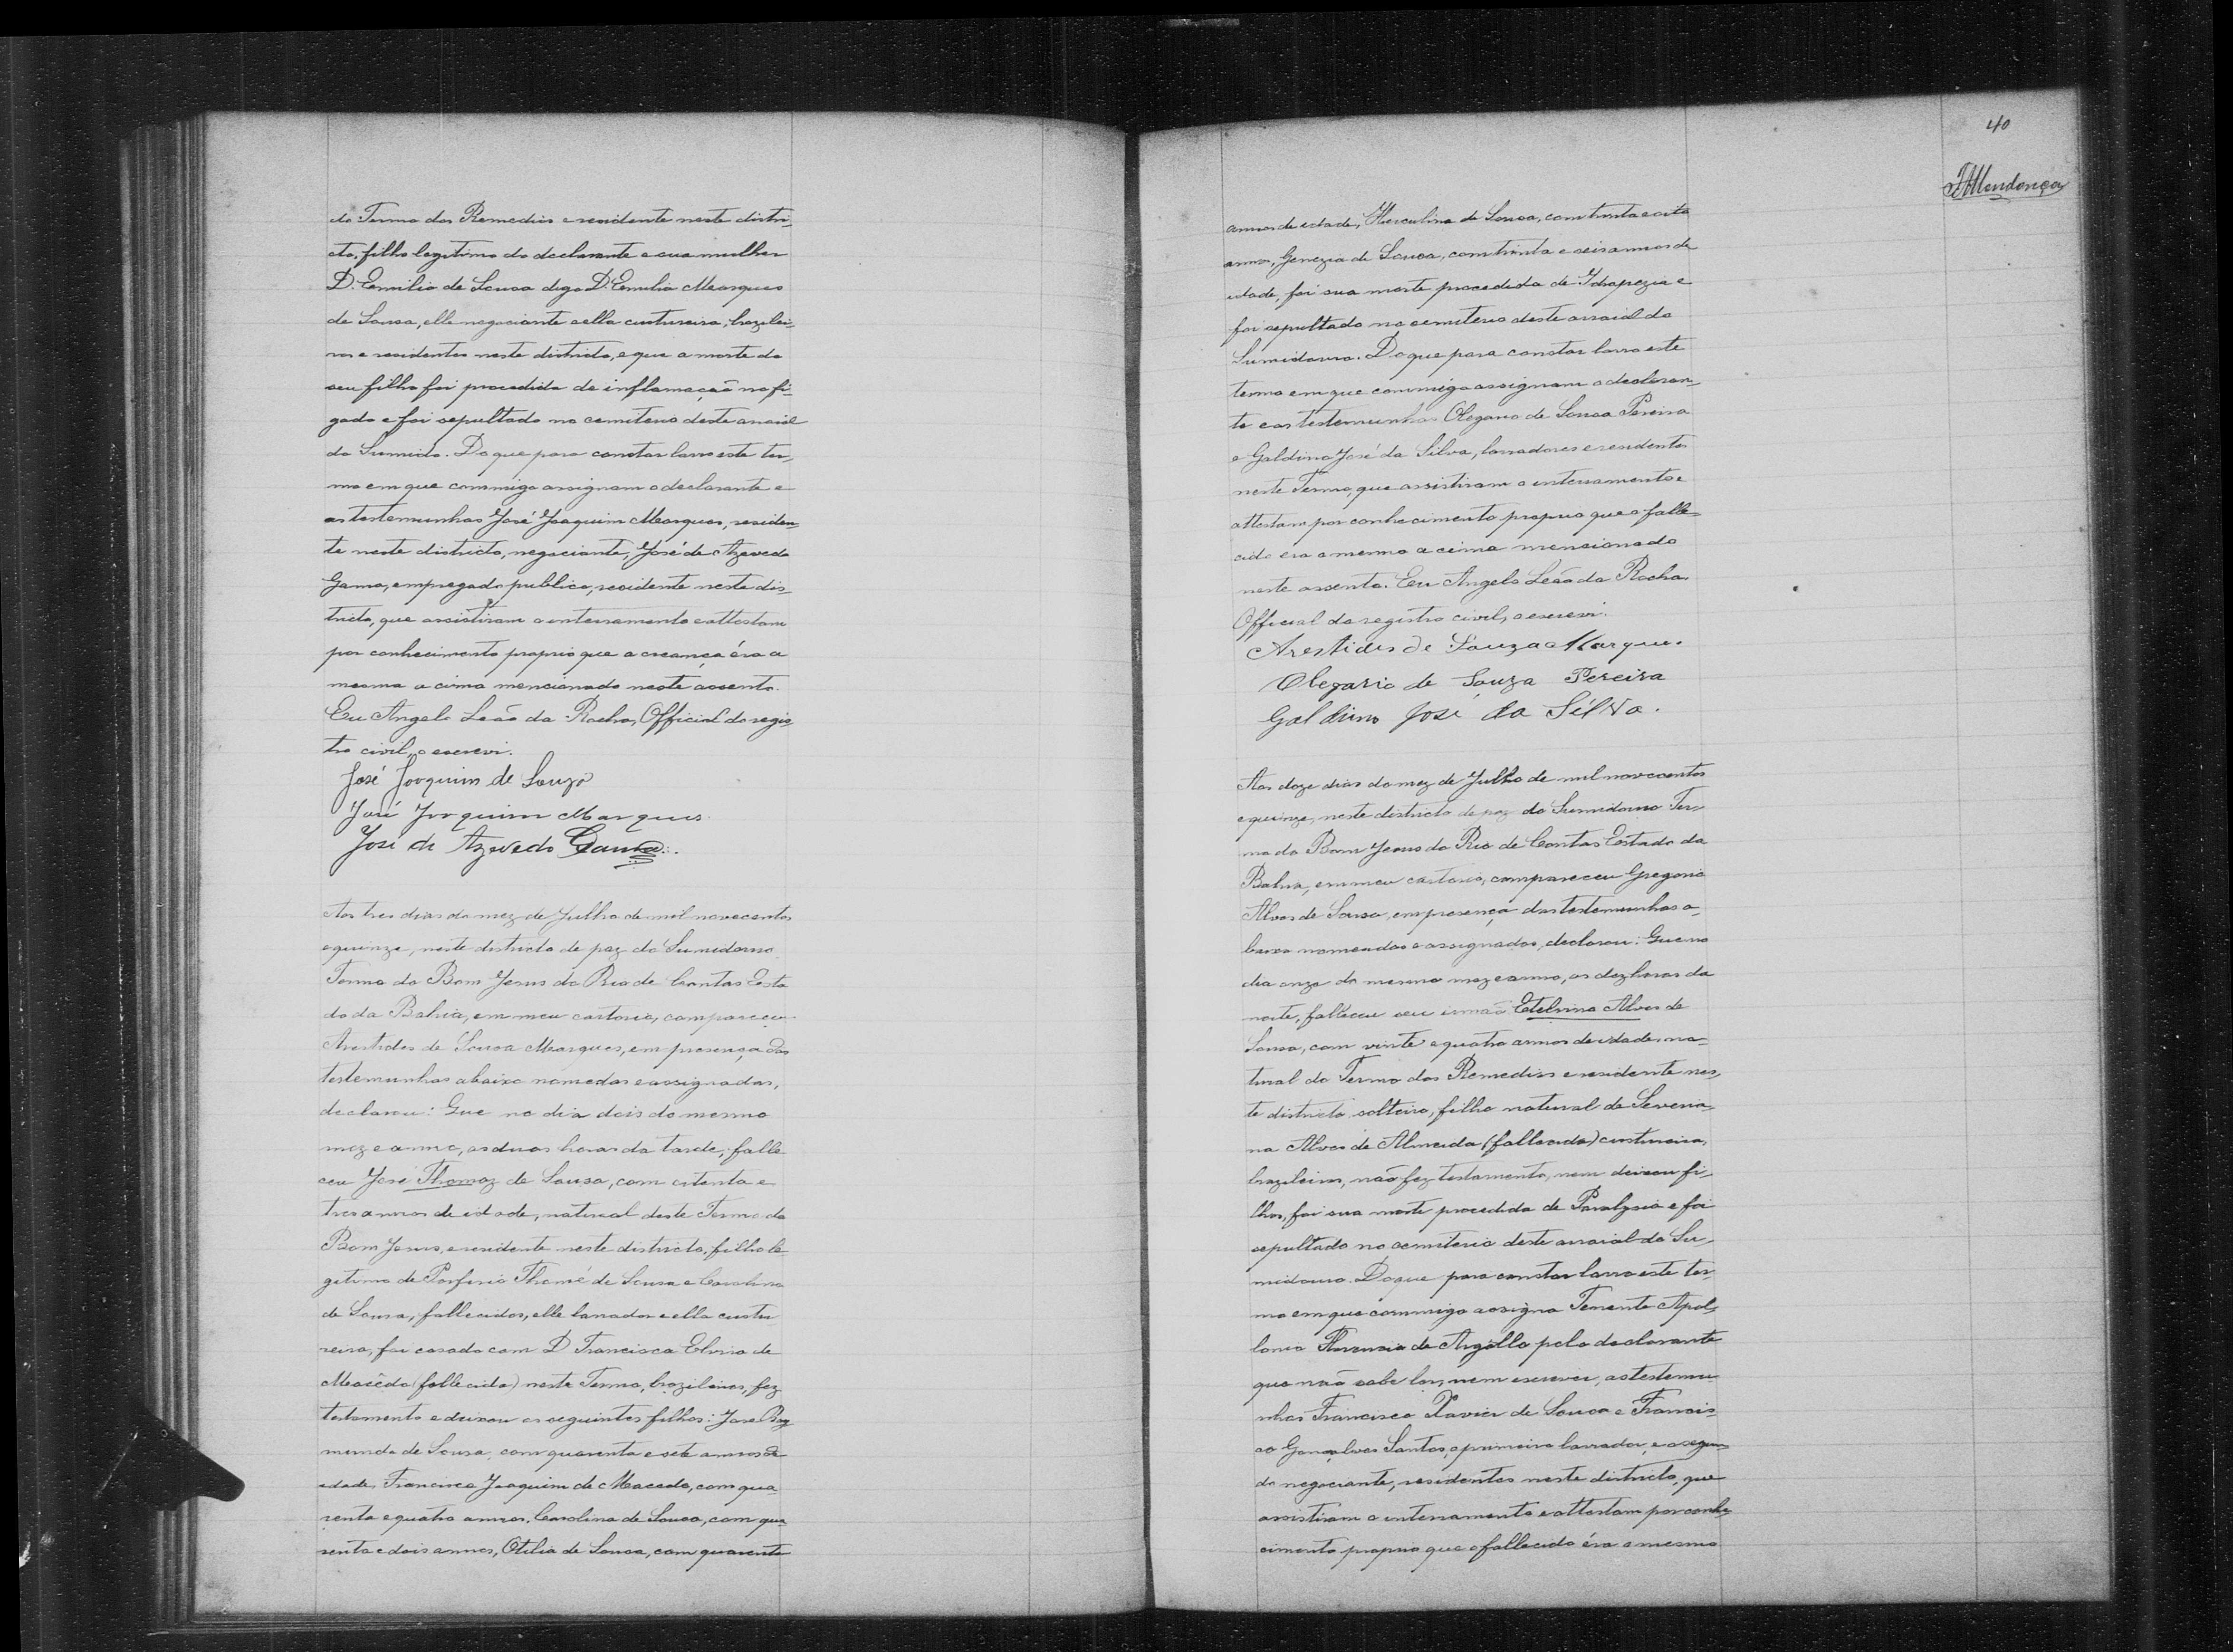 do Termo dos Remedios e residente neste distri-
cto, filho legitimo do declarante e sua mulher
D. Emilia de Sousa digo D. Emilia Marques
de Sousa, elle negociante e ella custureira, brazilei-
ros e residentes neste districto, e que a morte do
seu filho foi procedida de inflamação no fi-
gado e foi sepultado no cemiterio deste arraial
do Sumido. Do que para constar lavro este ter-
mo em que commigo assignam o declarante e
as testemunhas José Joaquim Marques, residen-
te neste districto, negociante, José de Azevedo
Gama, empregado publico, residente neste dis-
tricto, que assistiram o enterramento e attestam
por conhecimento proprio que a creança éra a
mesma acima mencionado neste assento.
Eu Angelo Leão da Rocha, Official do regis-
tro civil, o escrevi.
José Joaquim de Souza
José Joaquim Marques
José de Azevedo Gama
Aos tres dias do mez de Julho de mil novecentos
e quinze, neste districto de paz do Sumidouro
Termo do Bom Jesus do Rio de Contas Esta
do da Bahia, em meu cartorio, compareceu
Arestides de Sousa Marques, em presença das
testemunhas abaixo nomedas e assignadas,
declarou: Que no dia dois do mesmo
mez e anno, as duas horas da tarde, falle
ceu José Thomaz de Sousa, com oitenta e
tres annos de idade, natural deste Termo do
Bom Jesus, e residente neste districto, filho le
gitimo de Porfirio Thomé de Sousa e Carolina
de Sousa, fallecidos, elle lavrador e ella custu
reira, foi casado com D. Francisca Elvira de
Macêdo (fallecida) neste Termo, brazileiros, fez
testamento e deixou os seguintes filhos: José Ray
mundo de Sousa, com quarenta e sete annos de
edade, Francisco Joaquim de Macedo, com qua
renta e quatro annos, Carolina de Sousa, com qua
renta e dois annos, Otilia de Sousa, com quarenta
40
Mendonça
annos de edade, Herculina de Sousa, com trinta e oito
annos, Genezia de Sousa, com trinta e seis annos de
idade, foi sua morte procedida de Idropezia e
foi sepultado no cemiterio deste arraial do
Sumidouro. Do que para constar lavro este
termo em que commigo assignam o declaran-
te e as testemunhas Olegario de Sousa Pereira
e Galdino José da Silva, lavradores e residentes
neste Termo, que assistiram o enterramento e
attestam por conhecimento proprio que o falle-
cido era o mesmo acima mencionado
neste assento. Eu Angelo Leão da Rocha
Official do registro civil, o escrevi.
Arestides de Souza Marques
Olegario de Souza Pereira
Galdino José da Silva.
Aos doze dias do mez de Julho de mil novecentos
e quinze, neste districto de paz do Sumidouro Ter-
mo do Bom Jesus do Rio de Contas Estado da
Bahia, em meu cartorio, compareceu Gregorio
Alves de Sousa, em presença das testemunhas a-
baixo nomeadas e assignadas, declarou: Que no
dia onze do mesmo mez e anno, as dez horas da
noite, falleceu seu irmão Etelvino Alves de
Sousa, com vinte e quatro annos de idade, na-
tural do Termo dos Remedios e residente nes-
te districto, solteiro, filho natural de Severia-
na Alves de Almeida (fallecida) custureira,
brazileiros, não fez testamento, nem deixou fi-
lhos, foi sua morte procedida de Paralysia e foi
sepultado no cemiterio deste arraial do Su-
midouro. Do que para constar lavro este ter-
mo em que commigo assigna Tenente Apol-
lonio de Argollo pelo declarante
que não sabe ler, nem escrever, as testemu
nhas Francisco Xavier de Sousa e Francis-
co Gonçalves Santos, o primeiro lavrador, e o segun-
do negociante, residentes neste districto, que
assistiram o enterramento e attestam por conhe-
cimento proprio que o fallecido éra o mesmo